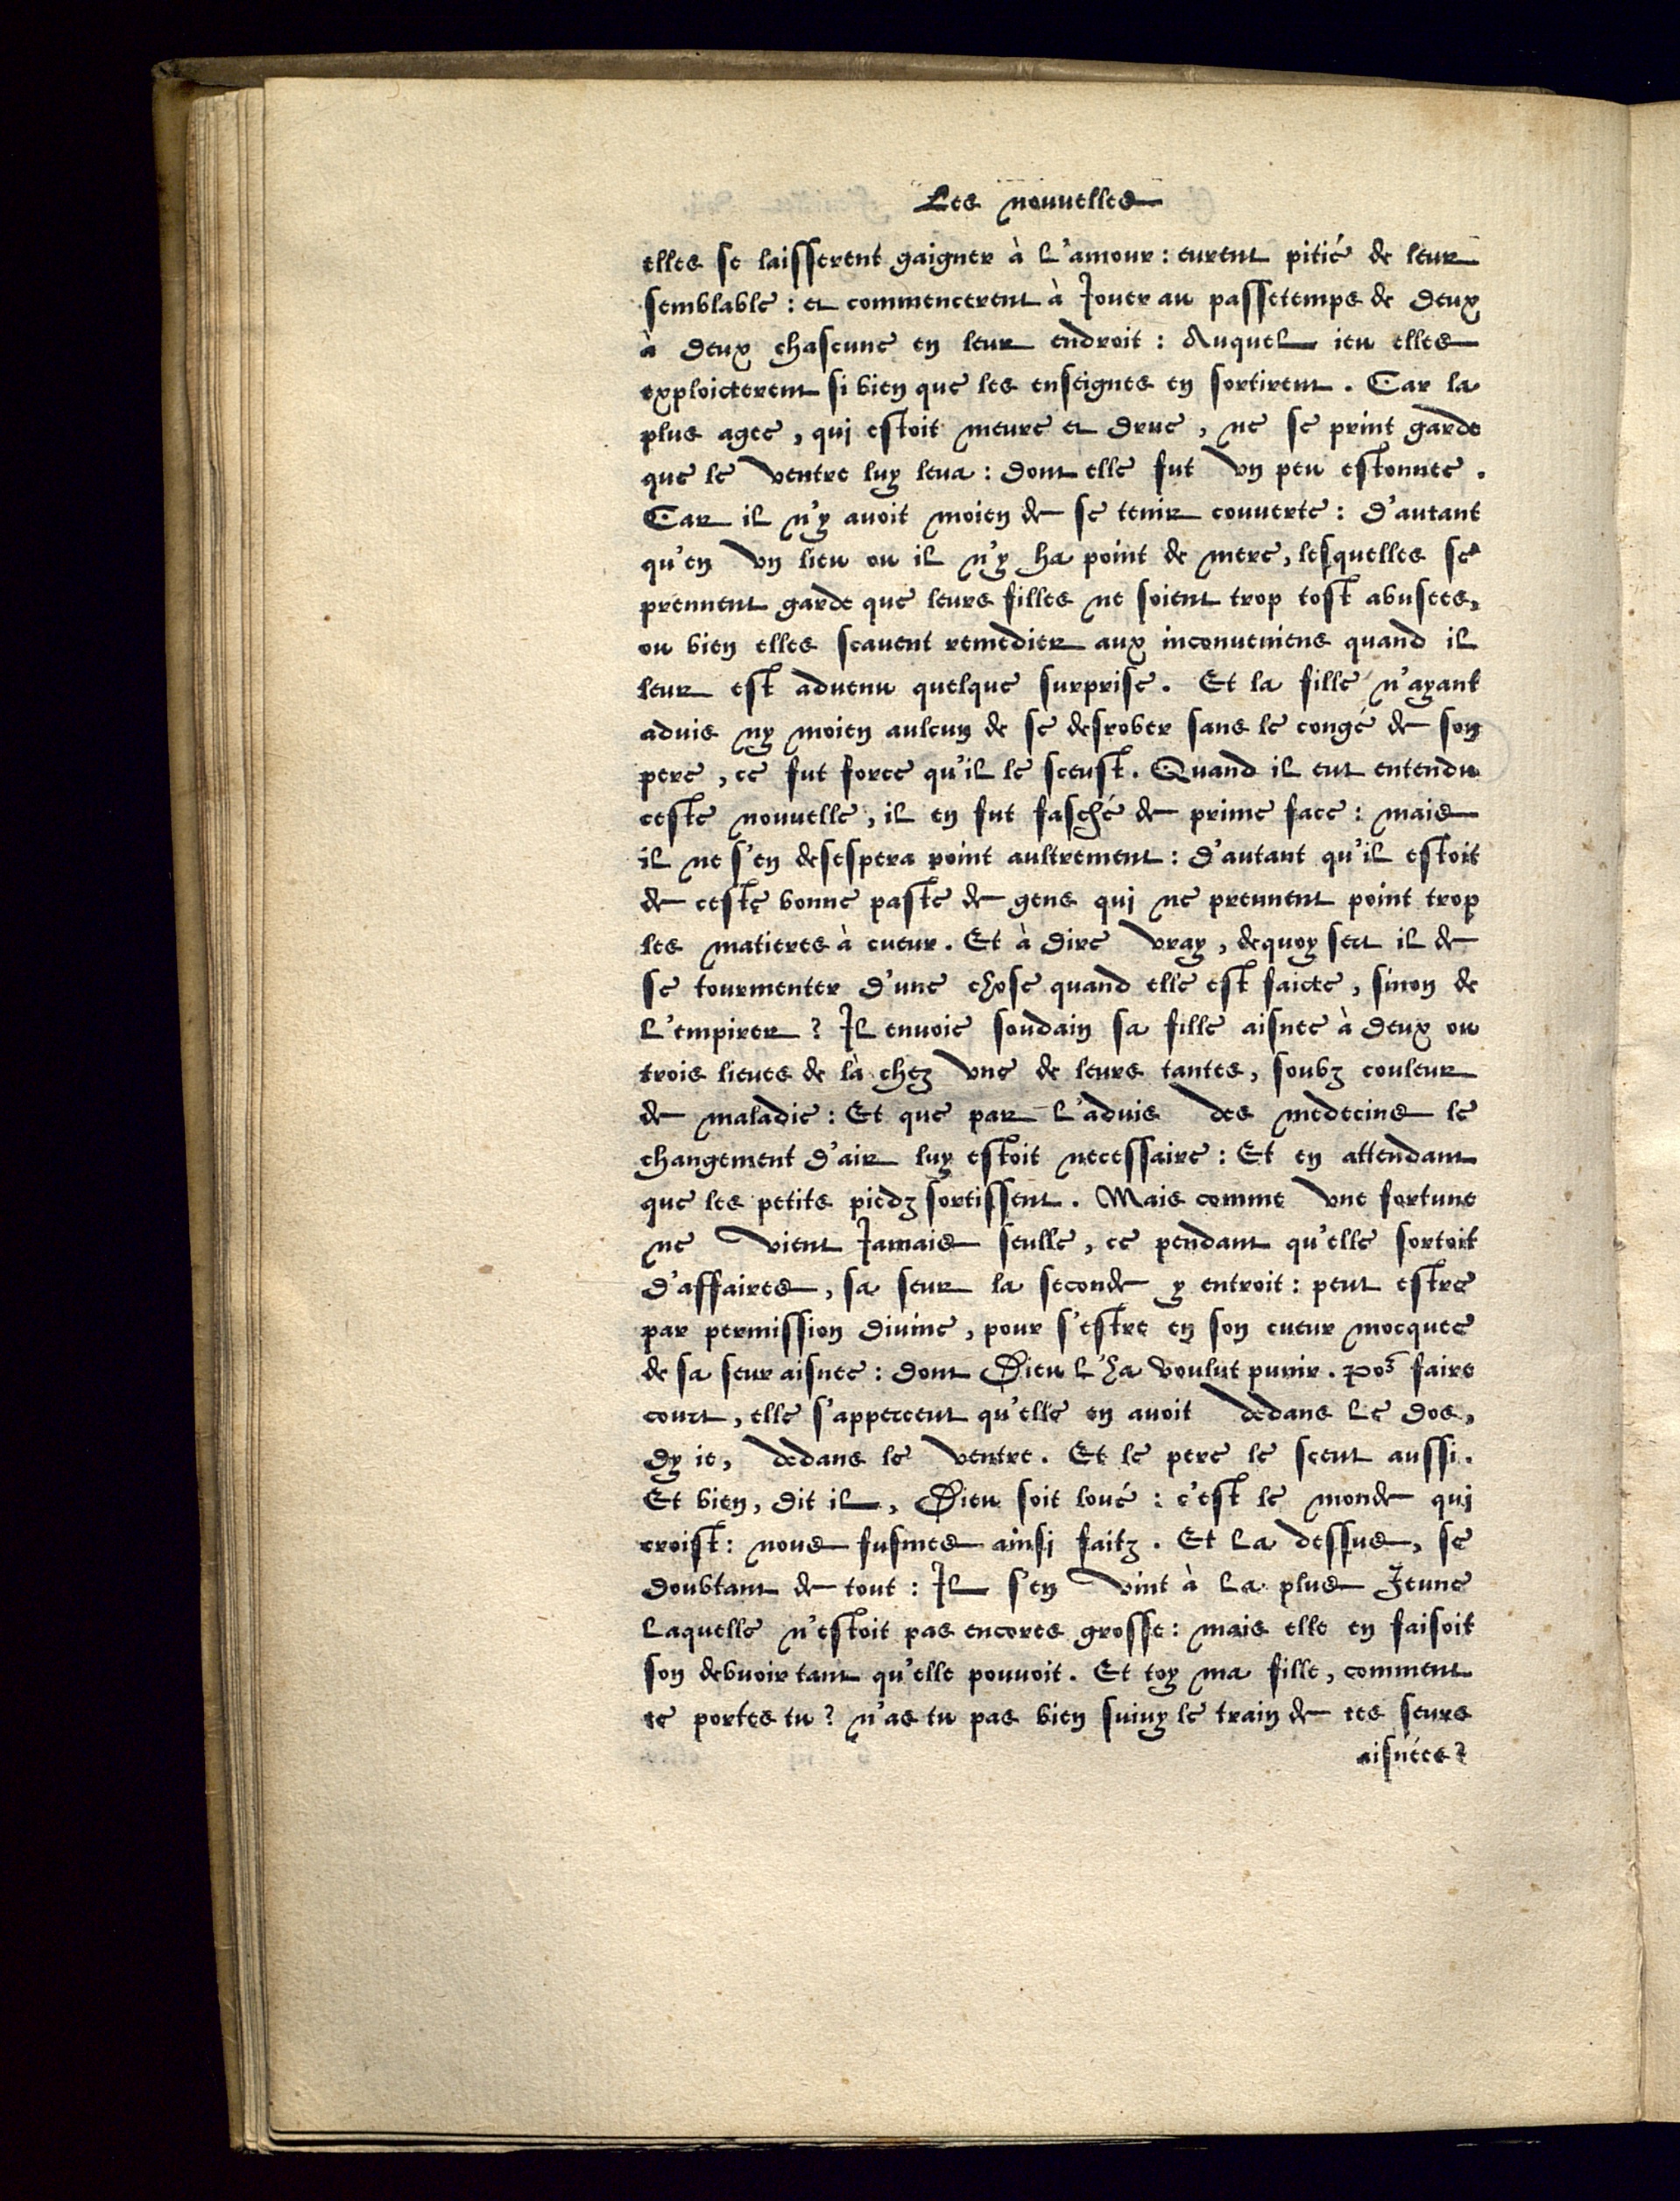 Les nouuelles
elles se laisserent gaigner à l'amour : eurent pitié de leur
semblable : et commencerent à Iouer au passetemps de deux
à deux chascune en leur endroit : Auquel ieu elles
exploicterent si bien que les enseignes en sortirent . Car la
plus agee , qui estoit meure et drue , ne se print garde
que le ventre luy leua : dont elle fut vn peu estonnee .
Car il n'y auoit moien de se tenir couuerte : d'autant
qu'en vn lieu ou il n'y ha point de mere , lesquelles se
prennent garde que leurs filles ne soient trop tost abusees,
ou bien elles scauent remedier aux inconueniens quand il
leur est aduenu quelque surprise . Et la fille n'ayant
aduis ny moien aulcun de se desrober sans le congé de son
pere , ce fut force qu'il le sceust . Quand il eut entendu
ceste nouuelle , il en fut fasché de prime face : mais
il ne s'en desespera point aultrement : d'autant qu'il estoit
de ceste bonne paste de gens qui ne prennent point trop
les matieres à cueur . Et à dire vray , dequoy sert il de
se tourmenter d'une chose quand elle est faicte , sinon de
l'empirer ? Il enuoie soudain sa fille aisnee à deux ou
trois lieues de là chez vne de leurs tantes , soubz couleur
de maladie : Et que par l'aduis des medecins le
changement d'air luy estoit necessaire : Et en attendant
que les petits piedz sortissent . Mais comme vne fortune
ne vient Iamais seulle , ce pendant qu'elle sortoit
d'affaires , sa seur la seconde y entroit : peut estre
par permission diuine , pour s'estre en son cueur mocquee
de sa seur aisnee : dont Dieu l'ha voulut punir . Po᷑ faire
court , elle s'apperceut qu'elle en auoit dedans le dos,
dy ie, dedans le ventre . Et le pere le sceut aussi .
Et bien , dit il , Dieu soit loué : c'est le monde qui
croist : nous fusmes ainsi faitz . Et la dessus, se
doubtant de tout : Il s'en vint à la plus Ieune
laquelle n'estoit pas encores grosse : mais elle en faisoit
son debuoir tant qu'elle pouuoit . Et toy ma fille , comment
te portes tu ? n'as tu pas bien suiuy le train de tes seurs
aisnées ?